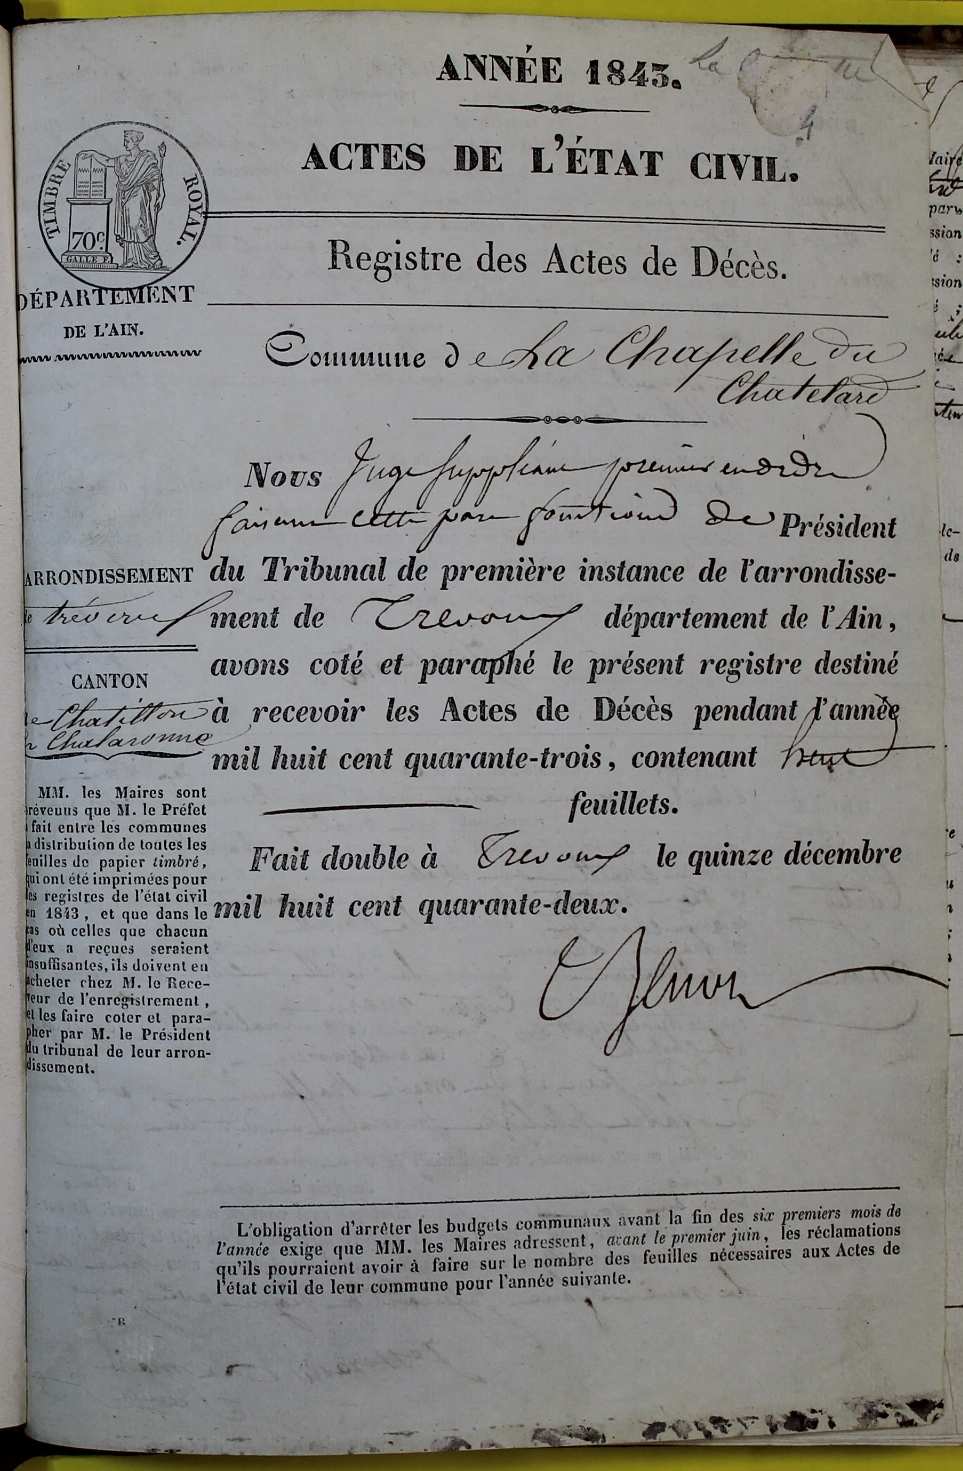 ANNÉE 1843.
La
4
ACTES DE L'ÉTAT CIVIL.
TIMBRE ROYAL.
70c.
GALLE F.
Registre des Actes de Décès.
DÉPARTEMENT
DE L'AIN.
Commune de La Chapelle du
Chatelard
Nous Juge Suppléant premier en ordre
faisant cette part fonctions de Président
du Tribunal de première instance de l'arrondisse-
ment de Trevoux département de l'Ain,
avons coté et paraphé le présent registre destiné
à recevoir les Actes de Décès pendant l'année
mil huit cent quarante-trois, contenant huit
feuillets.
Fait double à Trevoux le quinze décembre
mil huit cent quarante-deux.
ARRONDISSEMENT
de trévoux
CANTON
de Chatillon
Chalaronne
MM. les Maires sont
prévenus que M. le Préfet
a fait entre les communes
la distribution de toutes les
feuilles de papier timbré,
qui ont été imprimées pour
les registres de l'état civil
en 1843, et que dans le
cas où celles que chacun
d'eux a reçues seraient
insuffisantes, ils doivent en
acheter chez M. le Rece-
veur de l'enregistrement,
et les faire coter et para-
pher par M. le Président
du tribunal de leur arron-
dissement.
L'obligation d'arrêter les budgets communaux avant la fin des six premiers mois de
l'année exige que MM. les Maires adressent, avant le premier juin, les réclamations
qu'ils pourraient avoir à faire sur le nombre des feuilles nécessaires aux Actes de
l'état civil de leur commune pour l'année suivante.